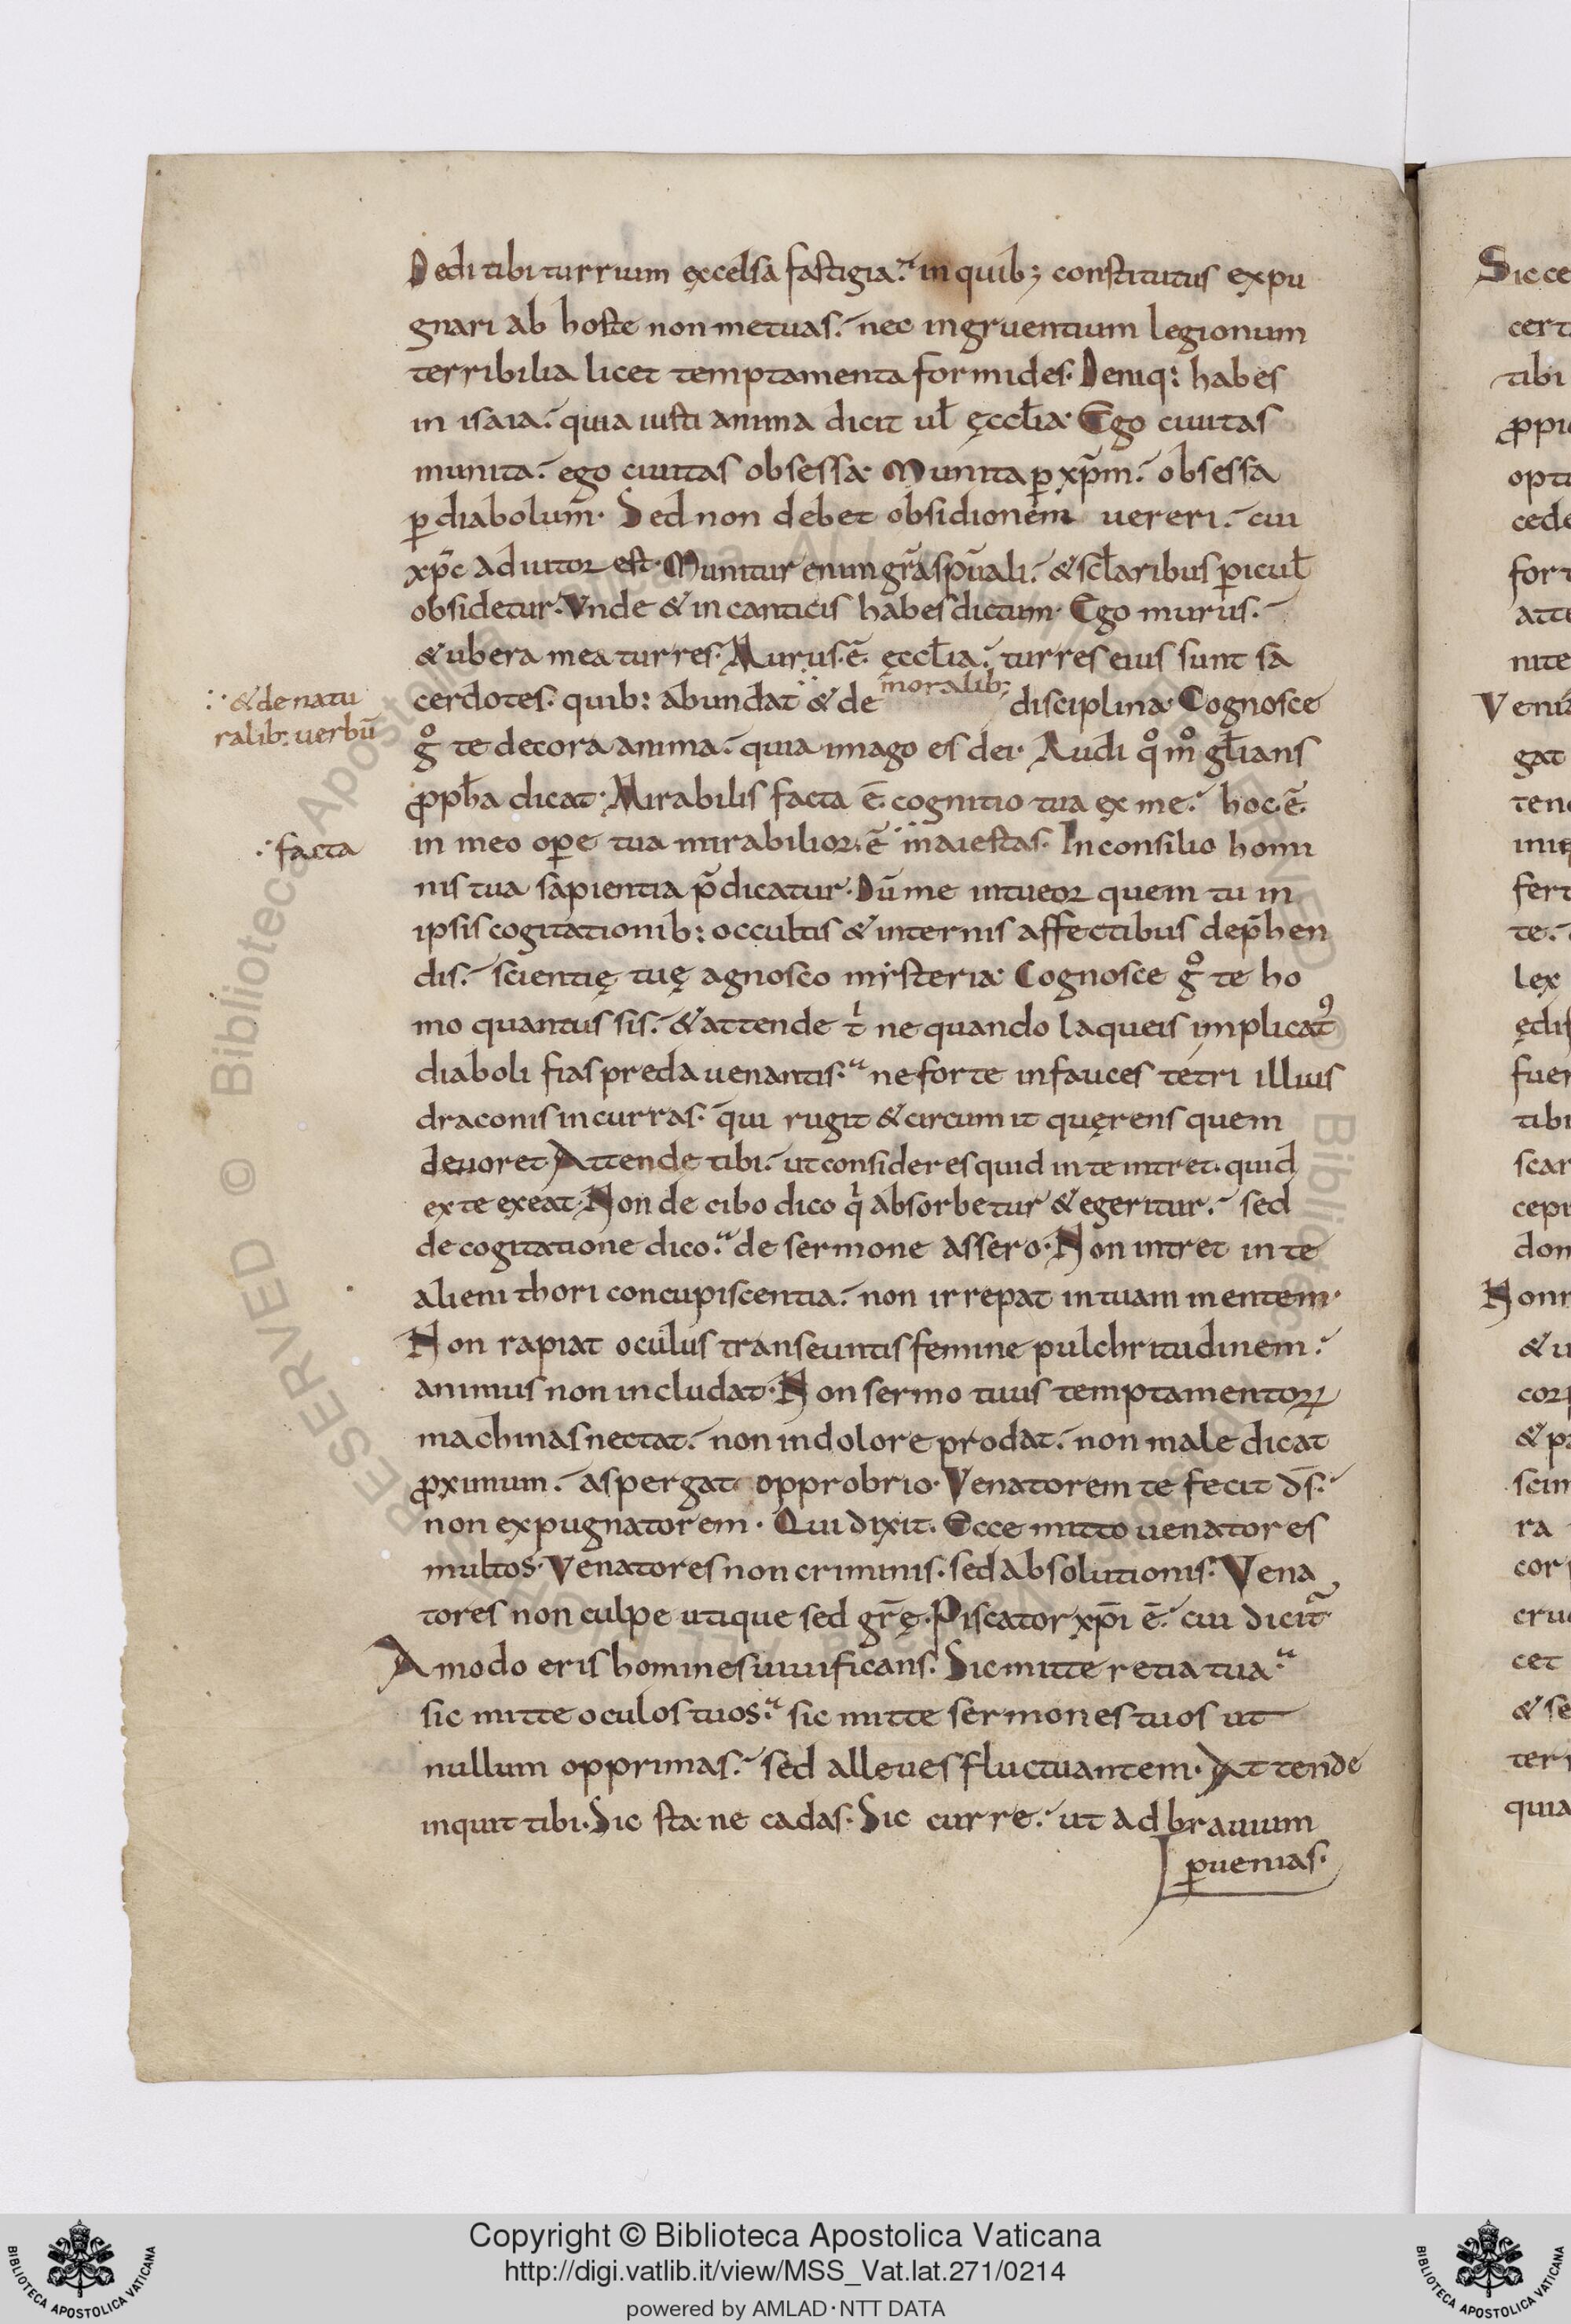 Dedi tibi turrium excelsa fastigia. in quib; constitutus expu
gnari ab hoste non metuas. nec ingruentium legionum
terribilia licet temptamenta formides. Deniq: habes
in isaia. quia iusti anima dicit ul̄ ęccl̄ia. Ego ciuitas
munita. ego ciuitas obsessa. Munita ꝑ xp̄m. obsessa
ꝑ diabolum. Sed non debet obsidionem uereri. cui
xp̄c adiutor est. Munitur enim gr̄a sp̄uali. & scl̄aribus ꝑicul̄
obsidetur. Vnde & in canticis habes dictum. Ego murus.
& ubera mea turres. Murus .ē. ęccl̄ia. turres eius sunt sa
cerdotes. quib: abundat & de moralib; disciplina. Cognosce
gͦ te decora anima. quia imago es dei. Audi qͦmͦ gl̄ians
ꝓph̄a dicat. Mirabilis facta ē. cognitio tua ex me. hoc .ē.
in meo oꝑe tua mirabilior .ē maiestas. In consilio homi
nis tua sapientia p̄dicatur. Dū me intueor quem tu in
ipsis cogitationib: occultis & internis affectibus dep̄hen
dis. scientię tuę agnosco mẏsteria. Cognosce gͦ te ho
mo quantus sis. & attende tⁱ ne quando laqueis implicatꝰ
diaboli fias preda uenantis. ne forte in fauces tetri illius
draconis incurras. qui rugit & circumit quęrens quem
deuoret. Attende tibi. ut consideres quid in te intret. quid
ex te exeat. Non de cibo dico qⁱ absorbetur & egeritur. sed
de cogitatione dico. de sermone assero. Non intret in te
alieni thori concupiscentia. non irrepat in tuam mentem.
Non rapiat oculus transeuntis femine pulchritudinem.
animus non includat. Non sermo tuus temptamentoꝝ
machinas nectat. non in dolore prodat. non male dicat
ꝓximum. aspergat opprobrio. Venatorem te fecit ds̄.
non expugnatorem. Qui dixit. Ecce mitto uenatores
multos. Venatores non criminis. sed absolutionis. Vena
tores non culpe utique sed gr̄ę. Piscator xp̄i ē. cui dicit᷑
Amodo eris homines uiuificans. Sic mitte retia tua.
sic mitte oculos tuos. sic mitte sermones tuos ut
nullum opprimas. sed alleues fluctuantem. Attende
inquit tibi. Sic sta. ne cadas. Sic curre. ut ad brauium
ꝑuenias.
& de natu
ralib: uerbū
facta
Sic ce
cert
tibi
ꝓpi
cede
Veni
gat
lex
fuer
tibi
scar
cepi
Non
& u
& p
ra
cet
& se
quia
© Biblioteca Apostolica Vaticana ALL RIGHTS RESERVED
Copyright © Biblioteca Apostolica Vaticana
http://digi.vatlib.it/view/MSS_Vat.lat.271/0214
powered by AMLAD·NTT DATA
BIBLIOTECA APOSTOLICA VATICANA
BIBLIOTECA APOSTOLICA VATICANA